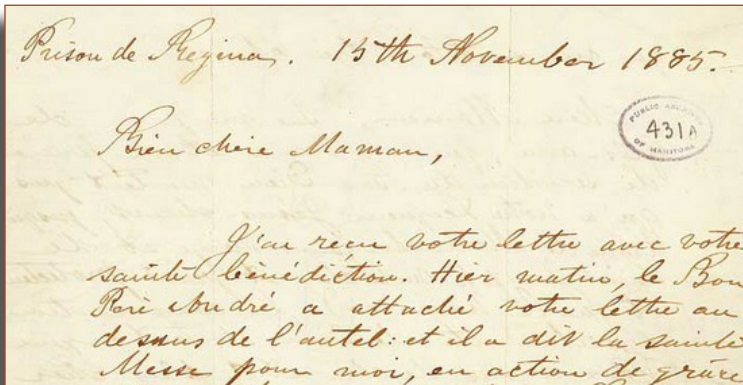 Prison de Regina. 15th November 1885.
PUBLIC ARCHIVES
431A
OF MANITOBA
Bien chère Maman,
J'ai reçu votre lettre avec votre
sainte bénédiction. Hier matin, le Bon
Père André a attaché votre lettre au
dessus de l'autel: et il a dit la sainte
Messe pour moi, en action de grâce